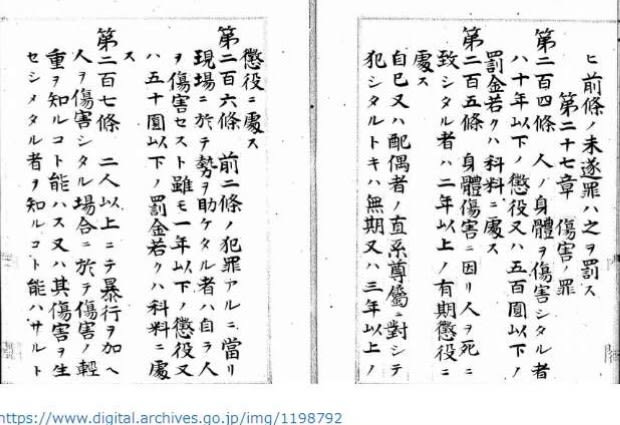 ヒ前條ノ未遂罪ハ之ヲ罰ス
第二十七章　傷害ノ罪
第二百四條　人ノ身體ヲ傷害シタル者
ハ十年以下ノ懲役又ハ五百圓以下ノ
罰金若クハ科料ニ處ス
第二百五條　身體傷害ニ因リ人ヲ死ニ
致シタル者ハ二年以上ノ有期懲役ニ
處ス
自己又ハ配偶者ノ直系尊屬ニ對シテ
犯シタルトキハ無期又ハ三年以上ノ
懲役ニ處ス
第二百六條　前二條ノ犯罪アルニ當リ
現場ニ於テ勢ヲ助ケタル者ハ自ラ人
ヲ傷害セスト雖モ一年以下ノ懲役又
ハ五十圓以下ノ罰金若クハ科料ニ處
ス
第二百七條　二人以上ニテ暴行ヲ加ヘ
人ヲ傷害シタル場合ニ於テ傷害ノ輕
重ヲ知ルコト能ハス又ハ其傷害ヲ生
セシメタル者ヲ知ルコト能ハサルト
https://www.digital.archives.go.jp/img/1198792